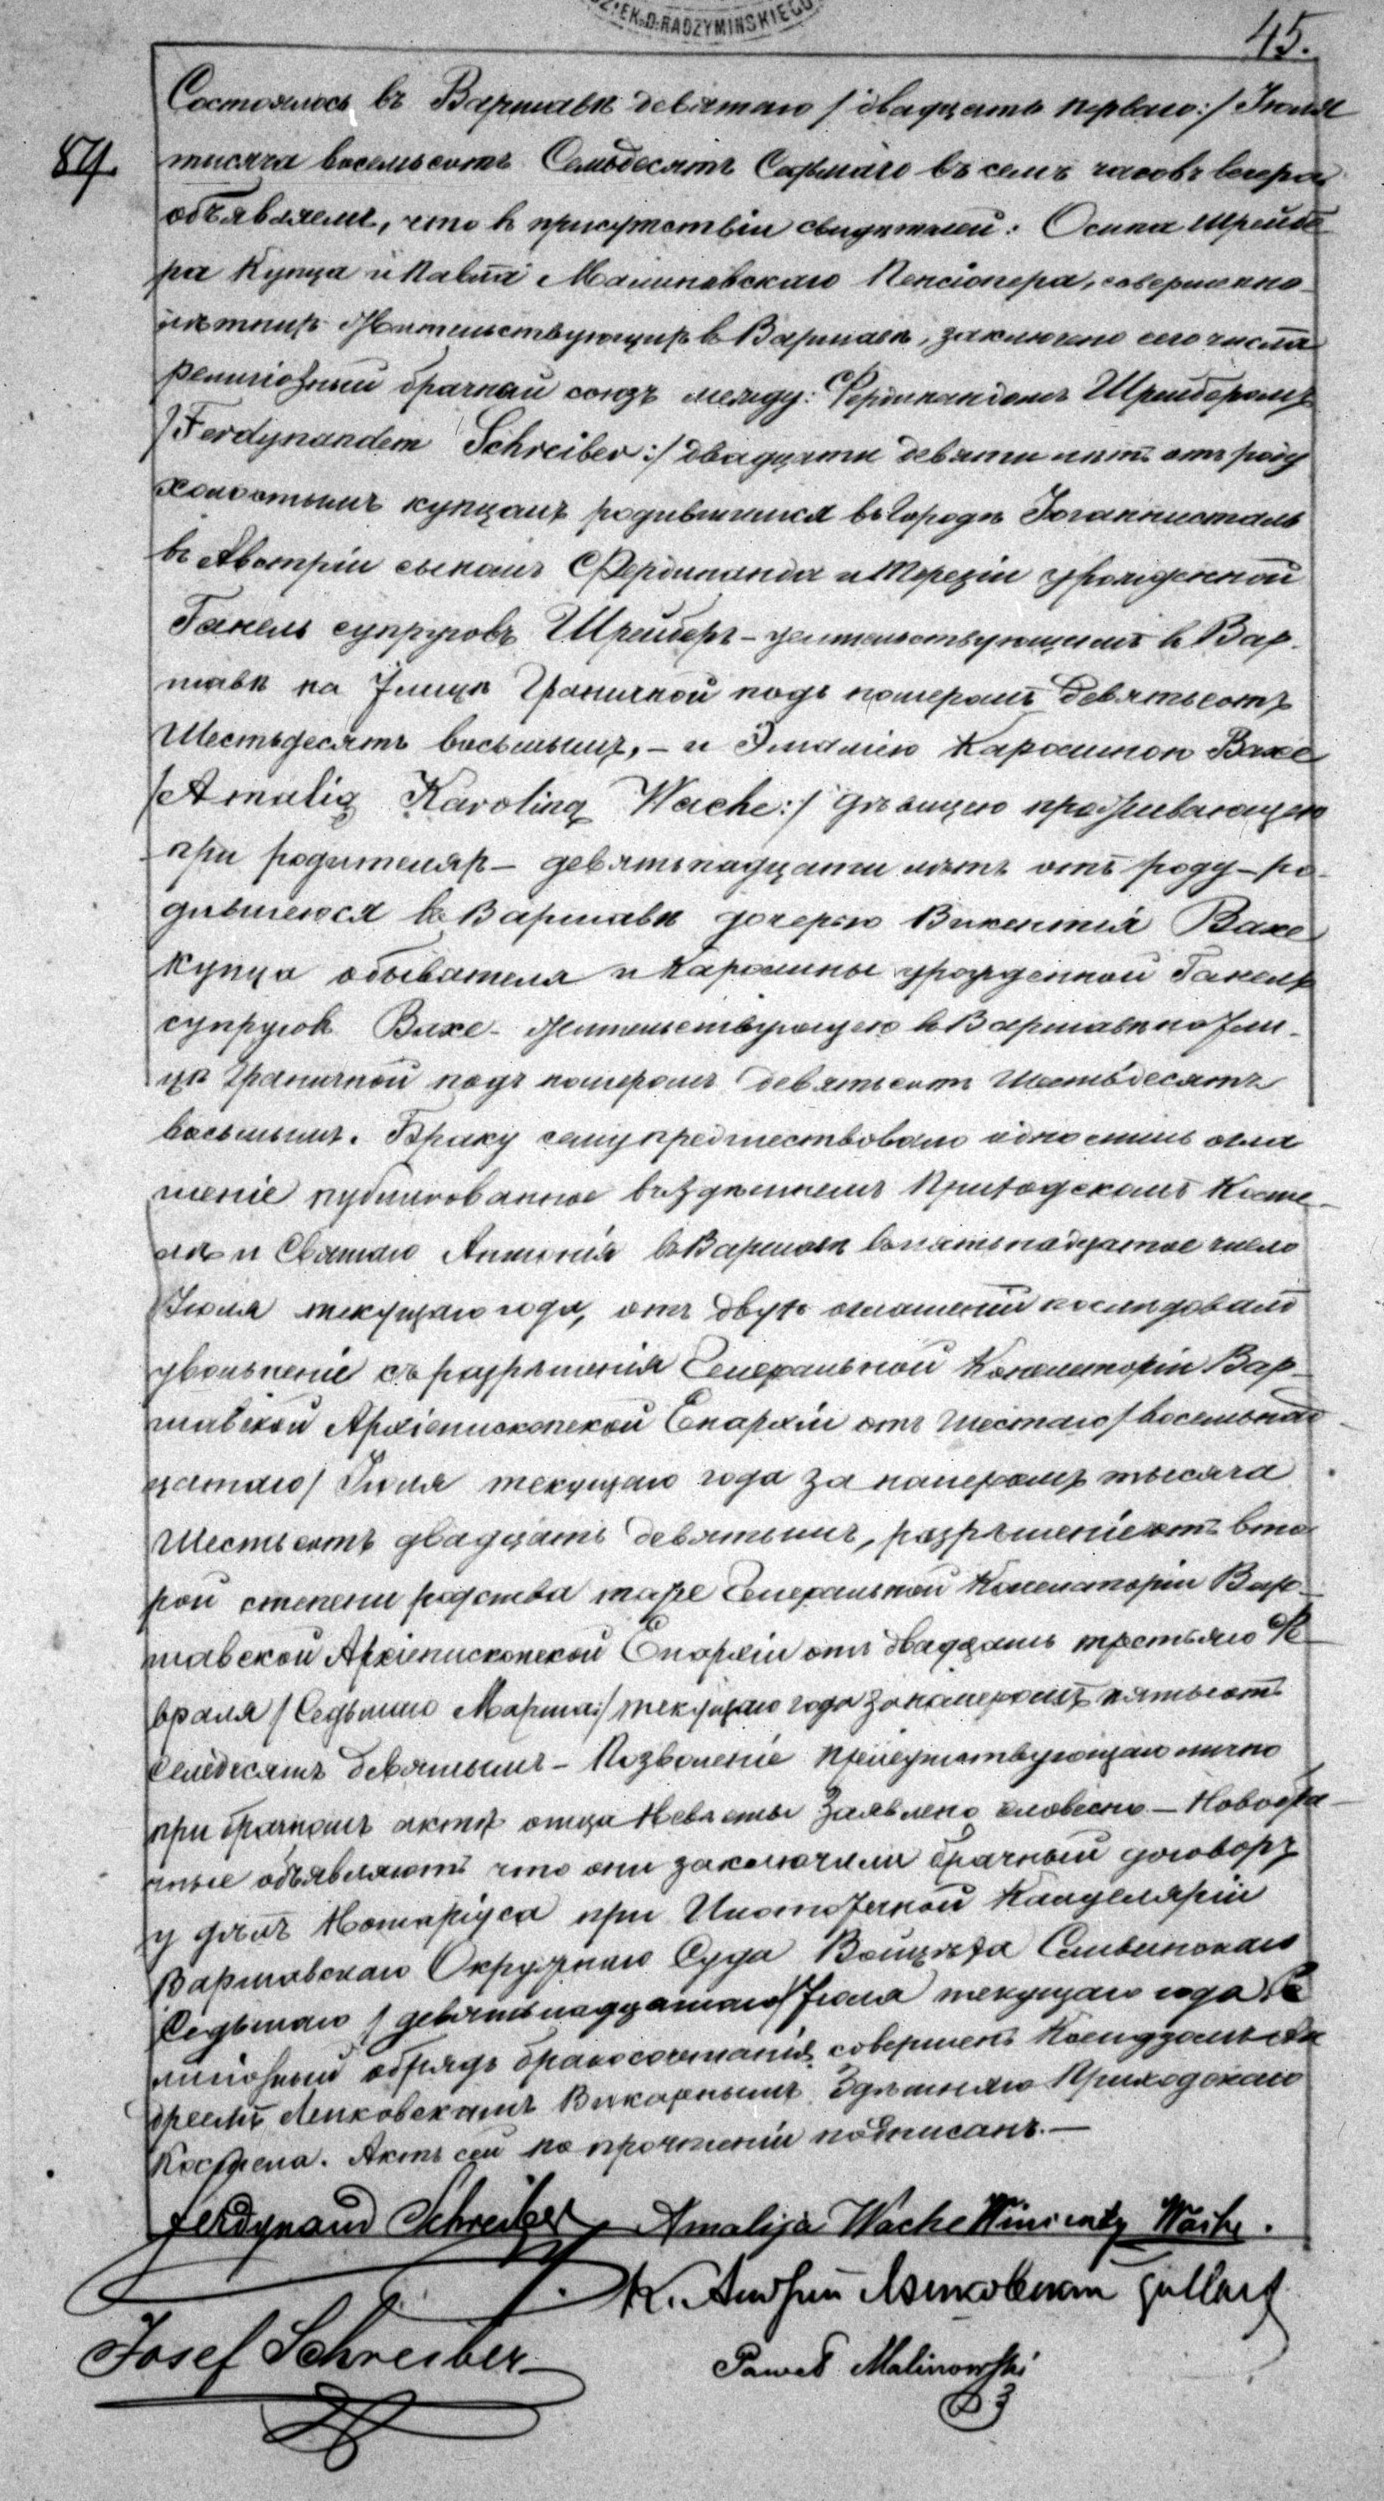 EK.D.RADZYMIŃSKIEGO
45.
87.
Состоялось въ Варшавѣ девятаго / двадцать перваго:/ Іюля
тысяча восемьсотъ Семьдесятъ Седьмаго въ семь часовъ вечера
объявляемъ, что въ присутствіи свидѣтелей: Осипа Шрейбе
ра Купца и Павла Малиновскаго Пенсіонера, совершенно
лѣтнихъ жительствующихъ въ Варшавѣ, заключено сего числа
религіозный брачный союзъ между: Фердинандомъ Шрейберомъ
/Ferdynandem Schreiber:/ двадцати девяти лѣтъ отъ роду
холостымъ купцомъ родившимся въ городѣ Іоганнисталь
въ Австріи сыномъ Фердинанда и Терезіи урожденной
Ганель супруговъ Шрейберъ - жительствующимъ въ Вар-
шавѣ на Улицѣ Граничной подъ номеромъ девятьсотъ
Шестьдесятъ восьмымъ, - и Амалією Каролиною Вахе
/Amalią Karoliną Wache:/ дѣвицею проживающею
при родителяхъ - девятьнадцати лѣтъ отъ роду - ро-
дившеюся въ Варшавѣ дочерью Викентія Вахе
купца обывателя и Каролины урожденной Ганель
супруговъ Вахе - жительствующею въ Варшавѣ по Ули-
цѣ Граничной подъ номеромъ девятьсотъ Шестьдесятъ
восьмымъ. Браку сему предшествовало одно лишь огла
шеніе публикованное въ здѣшнемъ Приходскомъ Косте-
лѣ Святаго Антонія въ Варшавѣ въ пятьнадцатое число
Іюля текущаго года, отъ двухъ оглашеній послѣдовало
увольненіе съ разрѣшенія Генеральной Консисторіи Вар-
шавской Архіепископской Епархіи отъ шестаго / восемьнад-
цатаго / Іюля текущаго года за номеромъ тысяча
Шестьсотъ двадцать девятымъ, разрѣшеніе отъ вто-
рой степени родства тоже Генеральной Консисторіи Вар-
шавской Архіепископской Епархіи отъ двадцать третьяго Фе
враля / Седьмаго Марта:/ текущаго года за номеромъ пятьсотъ
семьдесятъ девятымъ - Позволеніе присутствующаго лично
при брачномъ актѣ отца Невѣсты заявлено словесно - Новобра-
чные объявляютъ что они заключили брачный договоръ
у дѣлъ Нотаріуса при Ипотечной Канцеляріи
Варшавскаго Окружнаго Суда Войцѣха Сливинскаго
Седьмаго / девятьнадцатаго / Іюля текущаго года Ре
лигіозный обрядъ бракосочетанія совершенъ Ксендзомъ Ан
дреемъ Лепковскимъ Викарнымъ Здѣшняго Приходскаго
Костела. Актъ сей по прочтеніи подписанъ.-
Ferdynand Schreiber Amalija Wache Wincenty Wache.
К. Андрей
Josef Schreiber
Paweł Malinowski